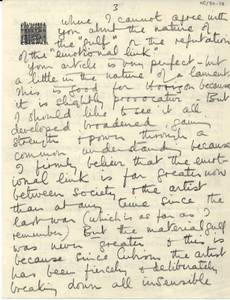 3
where I cannot agree with
you about the nature of
the "gulf" or the refutation
of the "emotional link"
your article is very perfect - but
a little in the nature of a lament
This is good for Horizon because
it is slightly provocative. But
I should like to see it all
developed broadened gaining
strength & power through a
common understanding because
I firmly believe that the emot-
ional link is far greater now
between society & the artist
than at any time since the
last war (which is as far as I
remember) But the material gulf
was never greater & this is
because since Cubism the artist
has been fiercely & deliberately
breaking down all insensible